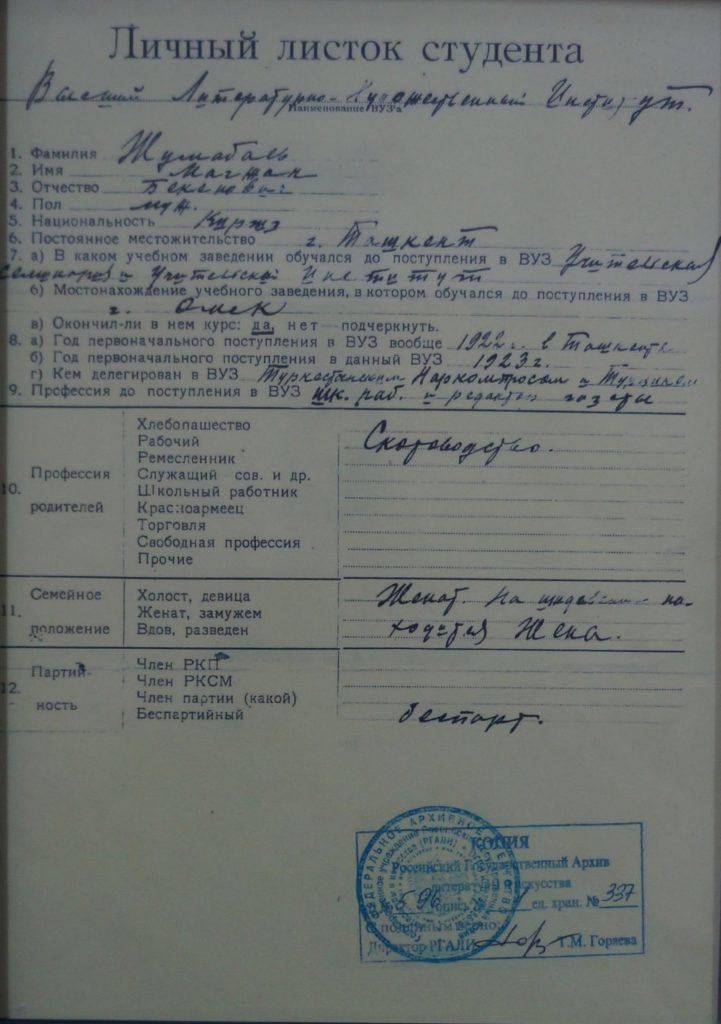 Личный листок студента
Высший Литературно-Художественный Институт.
Наименование ВУЗ'а
1. Фамилия Жумабаев
2. Имя Магжан
3. Отчество Бекенович
4. Пол муж.
5. Национальность Киргиз
6. Постоянное местожительство г. Ташкент
7. а) В каком учебном заведении обучался до поступления в ВУЗ Учительская
семинария и Учительский Институт
б) Мостонахождение учебного заведения, в котором обучался до поступления в ВУЗ
г. Омск
в) Окончил-ли в нем курс: да, нет—подчеркнуть.
8. а) Год первоначального поступления в ВУЗ вообще 1922 г. в Ташкенте
б) Год первоначального поступления в данный ВУЗ 1923 г.
г) Кем делегирован в ВУЗ Туркестанским Наркомпросом и
9. Профессия до поступления в ВУЗ шк. раб. и редактор газеты
10. Профессия родителей
Хлебопашество
Рабочий
Ремесленник
Служащий сов. и др.
Школьный работник
Красноармеец
Торговля
Свободная профессия
Прочие
Скотоводство.
11. Семейное положение
Холост, девица
Женат, замужем
Вдов, разведен
Женат. На на-
ходится жена.
12. Партийность
Член РКП
Член РКСМ
Член партии (какой)
Беспартийный
беспарт.
КОПИЯ
Российский Государственный Архив
литературы и искусства
596 опись ед. хран. № 337
С подлинным верно:
Директор РГАЛИ Т.М. Горяева